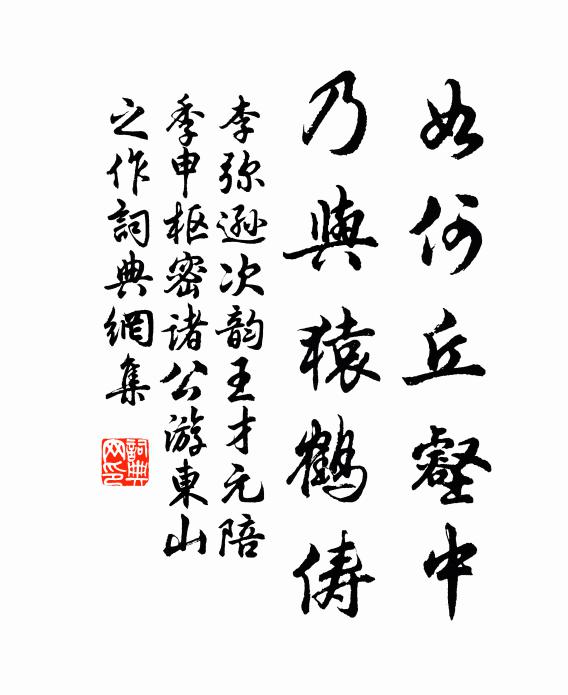 如何丘壑中
乃與猿鶴儔
李弥遜次韵王才元陪
季申枢密诸公游東山
之作詞典網集
詞典网印